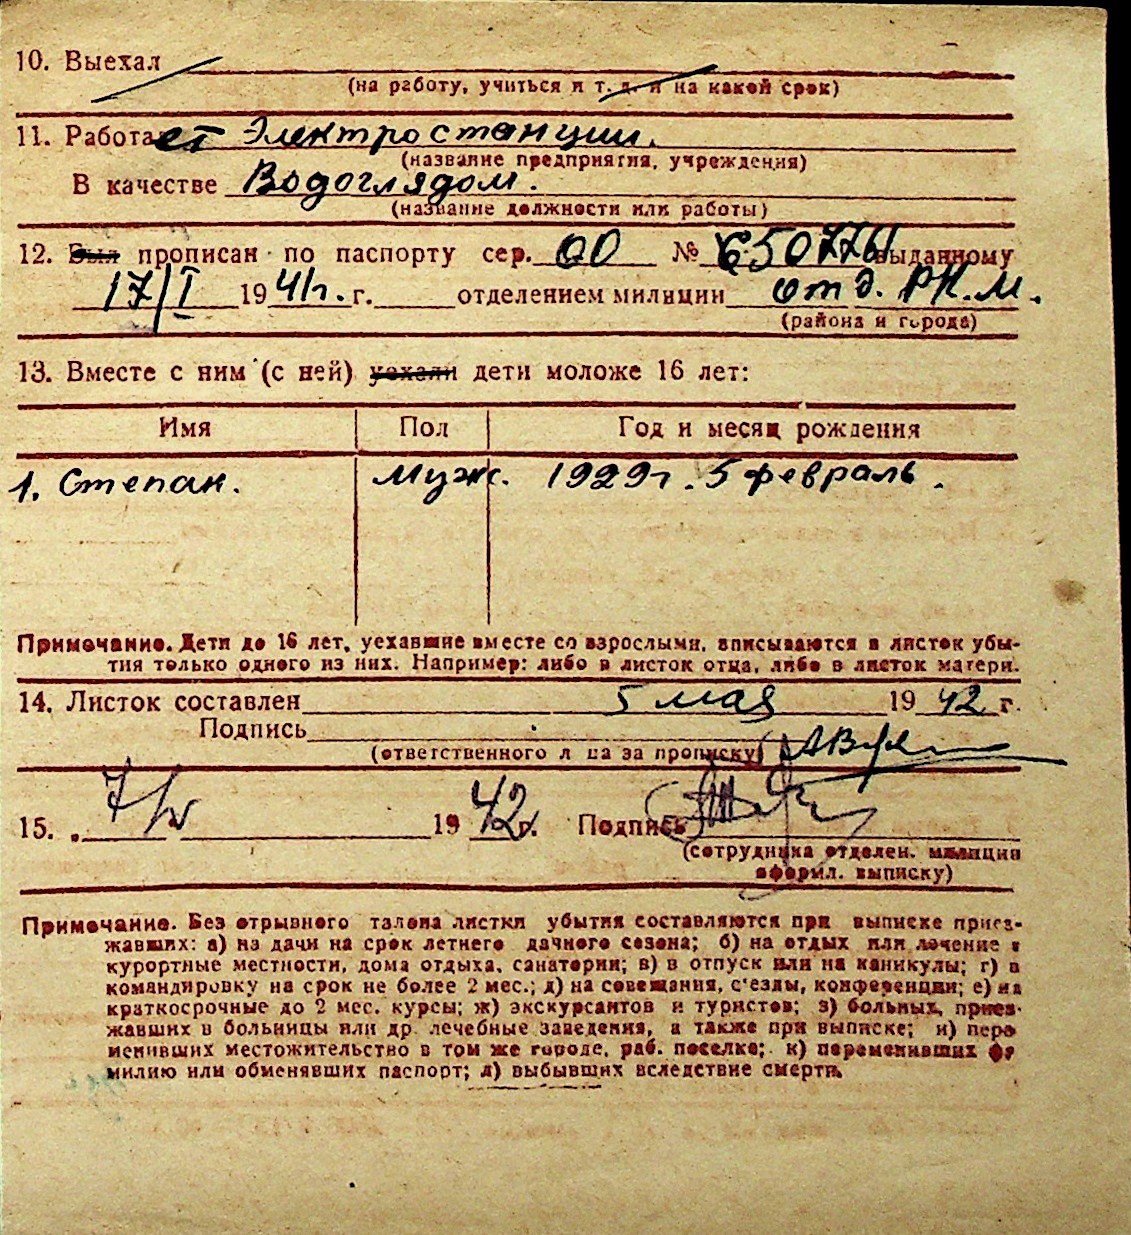 10. Выехал
(на работу, учиться и т. д. и на какой срок)
11. Работает Электростанции.
(название предприятия, учреждения)
В качестве Водоглядом.
(название должности или работы)
12. Был прописан по паспорту сер. 00 № 650776 выданному
17/I 1941г. г. отделением милиции отд. РК.М.
(района и города)
13. Вместе с ним (с ней) уехали дети моложе 16 лет:
Имя Пол Год и месяц рождения
1. Степан. муж. 1929г. 5 февраль.
Примечание. Дети до 16 лет, уехавшие вместе со взрослыми, вписываются в листок убы-
тия только одного из них. Например: либо в листок отца, либо в листок матери.
14. Листок составлен 5 мая 1942 г.
Подпись
(ответственного л ца за прописку)
15. „ 7/V 1942 г. Подпись
(сотрудника отделен. милиции
оформл. выписку)
Примечание. Без отрывного талона листки убытия составляются при выписке приез-
жавших: а) на дачи на срок летнего дачного сезона; б) на отдых или лечение в
курортные местности, дома отдыха, санатории; в) в отпуск или на каникулы; г) в
командировку на срок не более 2 мес.; д) на совещания, с'езды, конференции; е) на
краткосрочные до 2 мес. курсы; ж) экскурсантов и туристов; з) больных, приез-
жавших в больницы или др. лечебные заведения, а также при выписке; и) пере
менивших местожительство в том же городе, раб. поселке; к) переменивших фа
милию или обменявших паспорт; л) выбывших вследствие смерти.